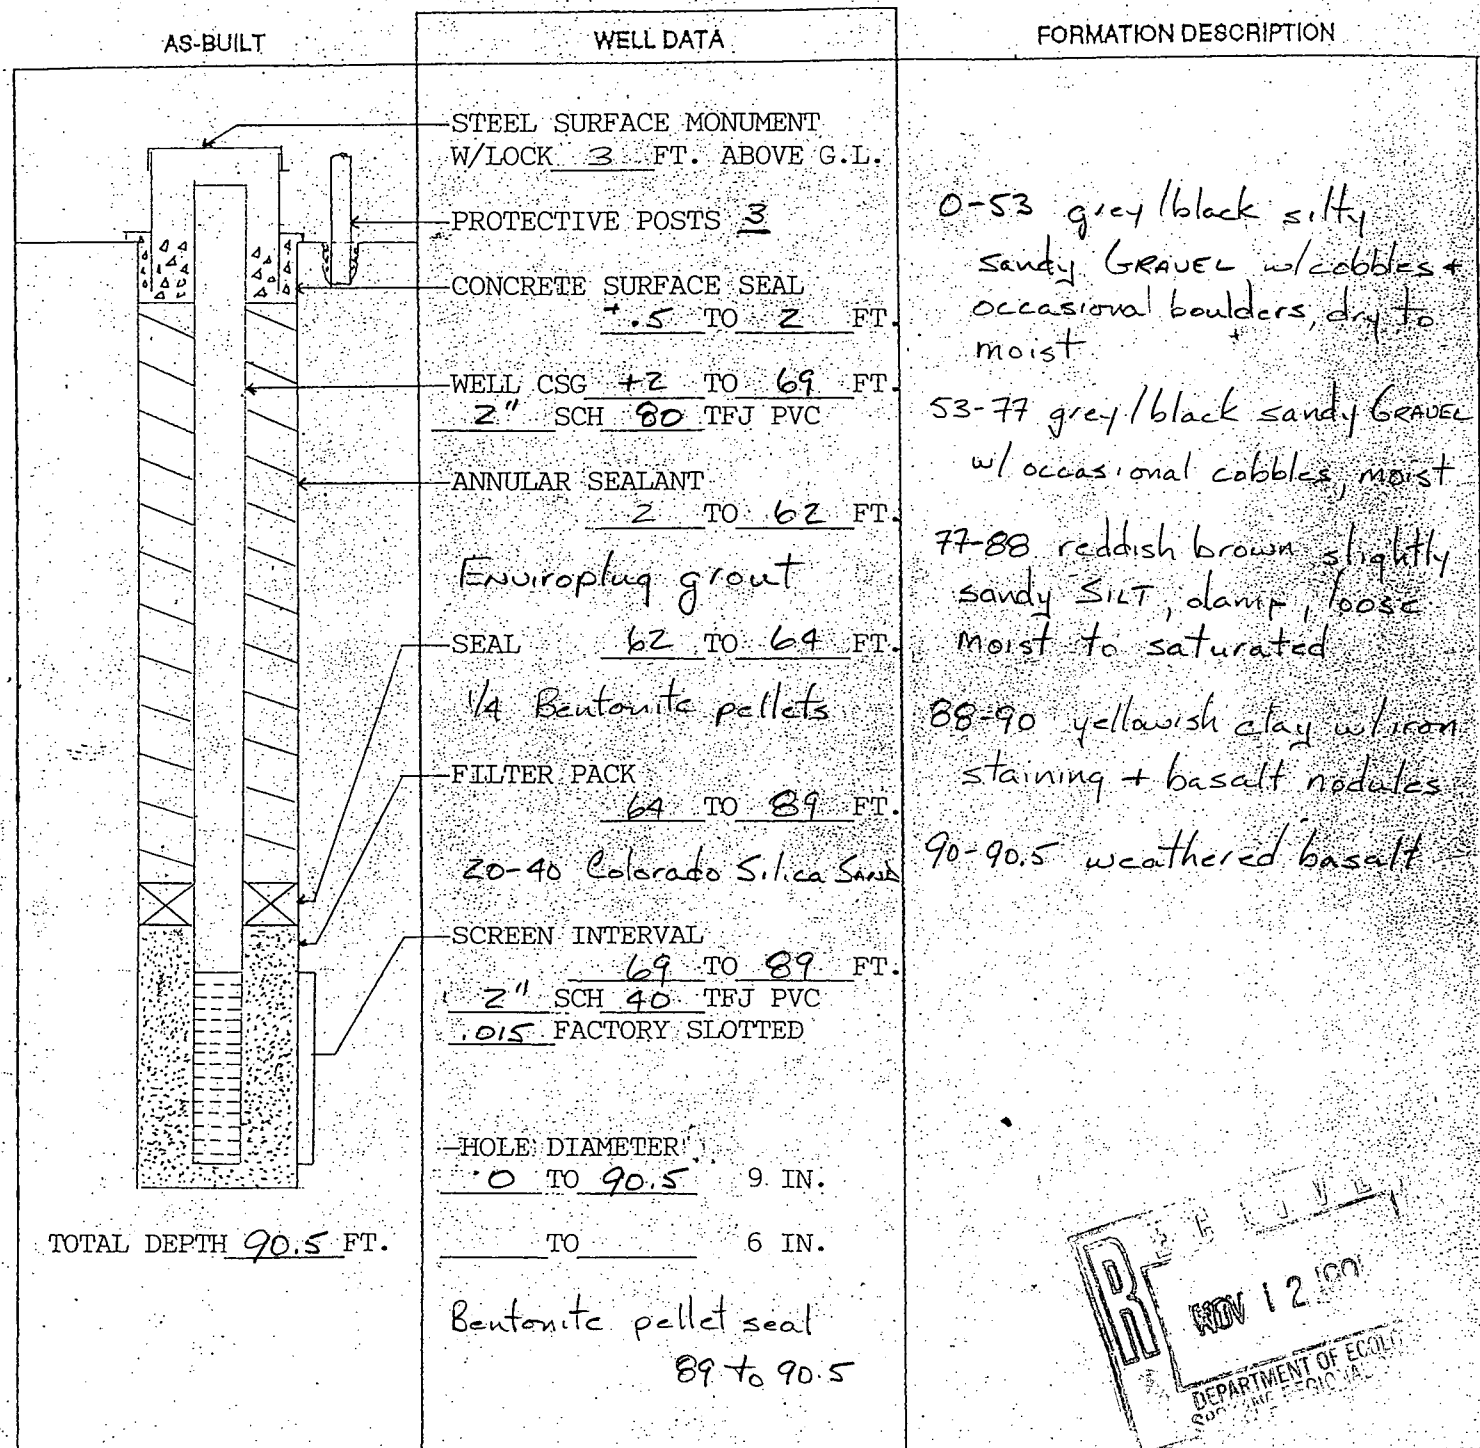 AS-BUILT
WELL DATA
FORMATION DESCRIPTION
STEEL SURFACE MONUMENT
W/LOCK 3 FT. ABOVE G.L.
PROTECTIVE POSTS 3
CONCRETE SURFACE SEAL
+.5 TO 2 FT.
WELL CSG +2 TO 69 FT.
2" SCH 80 TFJ PVC
ANNULAR SEALANT
2 TO 62 FT.
Enviroplug grout
SEAL 62 TO 64 FT.
1/4 Bentonite pellets
FILTER PACK
64 TO 89 FT.
20-40 Colorado Silica Sand
SCREEN INTERVAL
69 TO 89 FT.
2" SCH 40 TFJ PVC
.015 FACTORY SLOTTED
HOLE DIAMETER
0 TO 90.5 9 IN.
TO 6 IN.
Bentonite pellet seal
89 to 90.5
TOTAL DEPTH 90.5 FT.
0-53 grey/black silty
sandy GRAVEL w/cobbles +
occasional boulders, dry to
moist
53-77 grey/black sandy GRAVEL
w/ occasional cobbles, moist
77-88 reddish brown slightly
sandy SILT, damp, loose
moist to saturated
88-90 yellowish clay w/iron
staining + basalt nodules
90-90.5 weathered basalt
NOV 12
DEPARTMENT OF